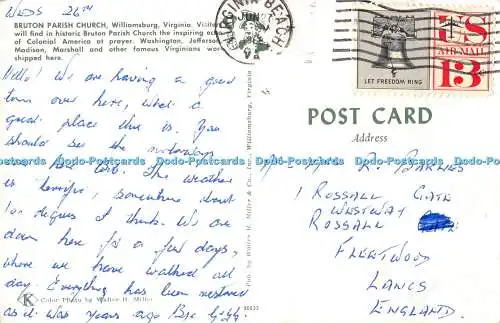 WEDS 26TH
BRUTON PARISH CHURCH, Williamsburg, Virginia.
will find in historic Bruton Parish Church the inspiring
of Colonial America at prayer. Washington, Jefferson,
Madison, Marshall and other famous Virginians wor-
shipped here.
Hello! We are having a good
town over here, what a
good place this is. You
should see the motorways
The weather
is terrific, somewhere about
100 degrees I think. We are
down here for a few days,
where we have walked all
day. Everything has been restored
as it was years ago. Bye
K Color Photo by Walter H. Miller
Pub. by Walter H. Miller & Co. Inc., Williamsburg, Virginia
VIRGINIA BEACH
JUN 27
LET FREEDOM RING
US
AIR MAIL
13
POST CARD
Address
R. BARNES
1 ROSSALL GATE
WESTWAY
ROSSALL
FLEETWOOD
LANCS
ENGLAND.
Dodo-Postcards Dodo-Postcards Dodo-Postcards Dodo-Postcards